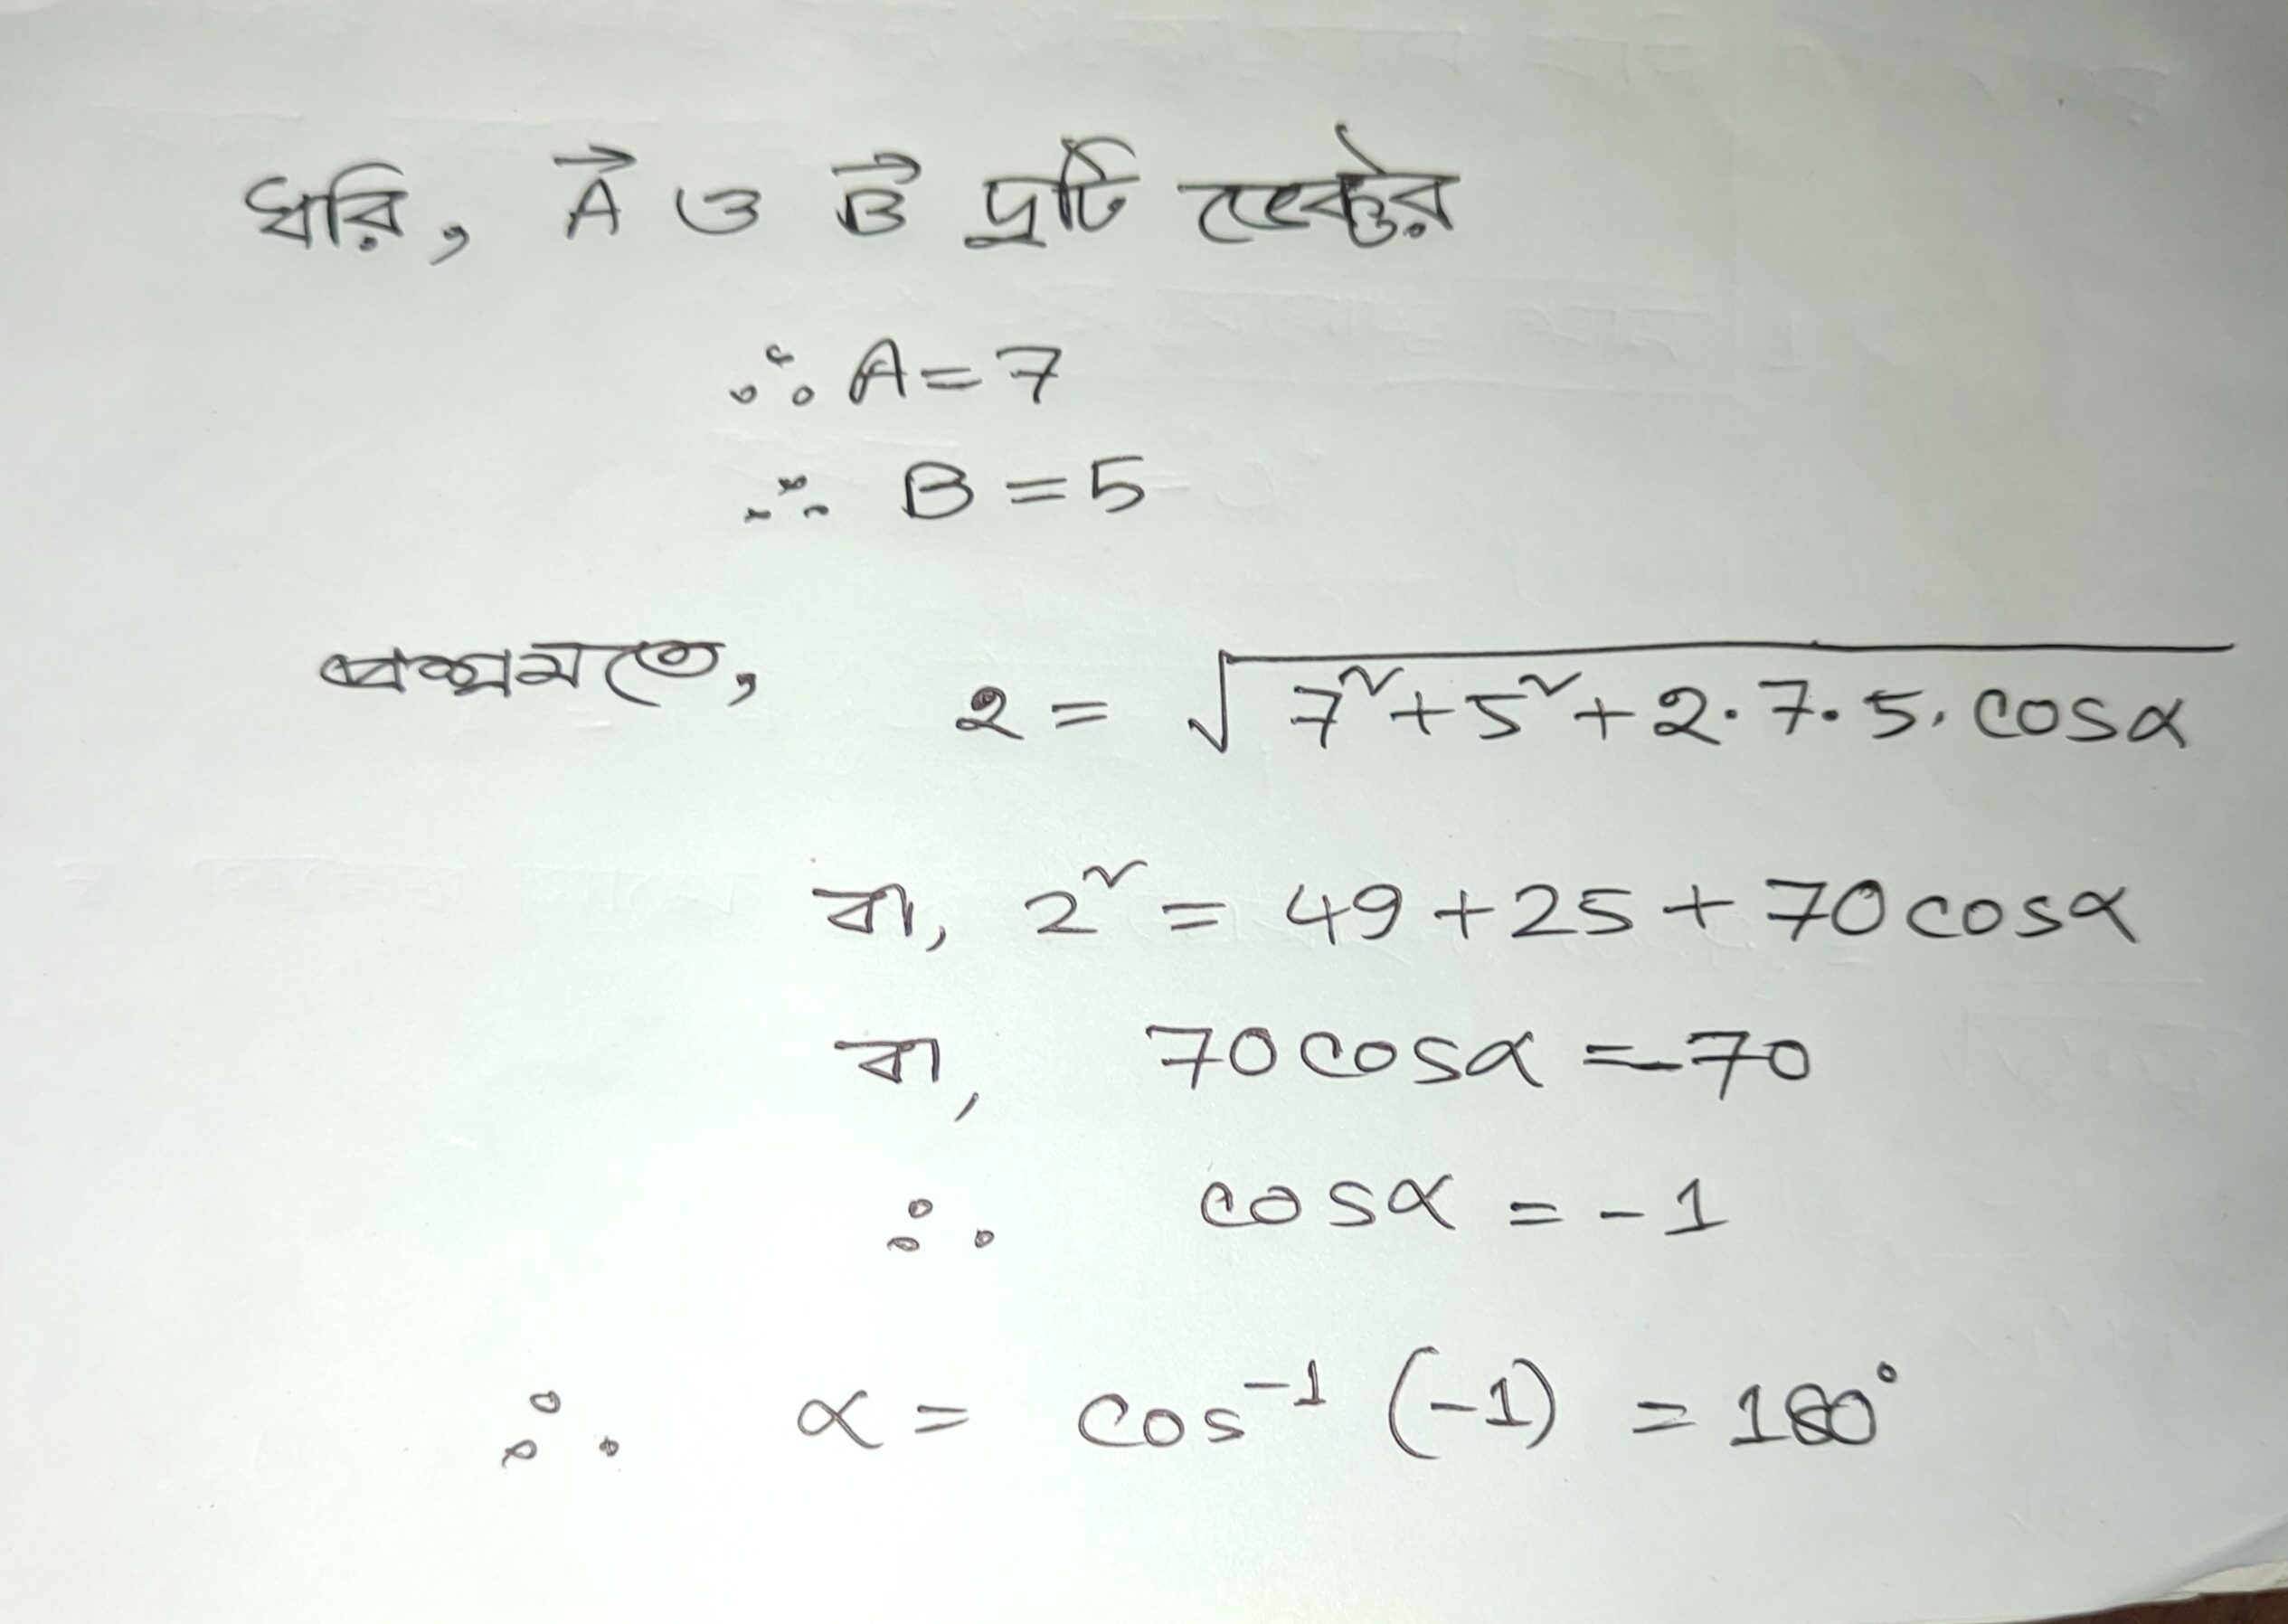 ধরি, A⃗ ও B⃗ দুটি ভেক্টর
∴ A = 7
∴ B = 5
প্রশ্নমতে, 2 = √(7² + 5² + 2·7·5·cosα)
বা, 2² = 49 + 25 + 70cosα
বা, 70cosα = -70
∴ cosα = -1
∴ α = cos⁻¹ (-1) = 180°